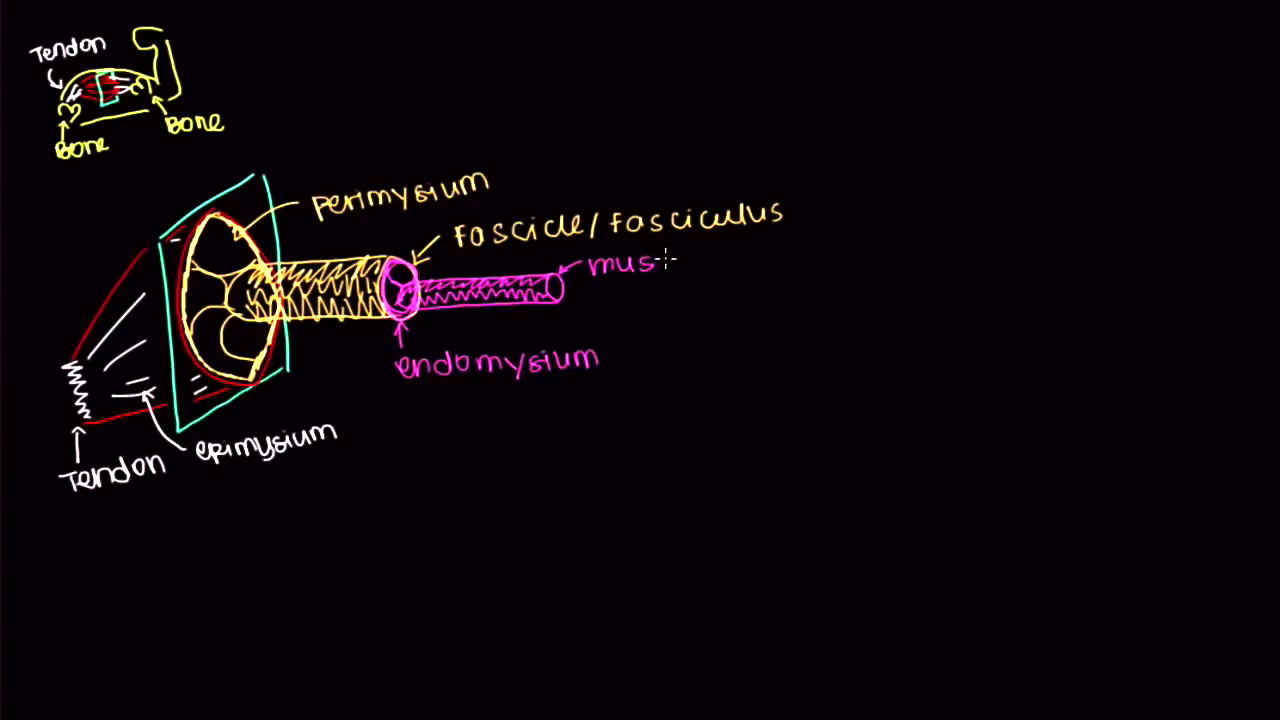 Tendon
Bone
Bone
perimysium
fascicle/fasciculus
mus
endomysium
epimysium
Tendon